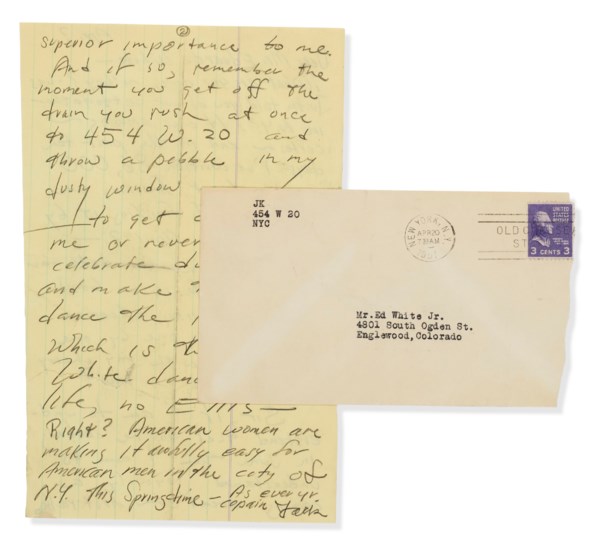 2
superior importance to me.
And if so, remember the
moment you get off the
train you rush at once
to 454 W. 20 and
throw a pebble in my
dusty window
to get
me or never
celebrate
and make
dance the
Which is
White
life, no
Right? American women are
making it awfully easy for
American men in the city of
N.Y. This Springtime — As ever yr.
copain Jack
JK
454 W 20
NYC
NEW YORK, N.Y.
APR 20
UNITED
STATES
3 CENTS 3
Mr.Ed White Jr.
4801 South Ogden St.
Englewood,Colorado